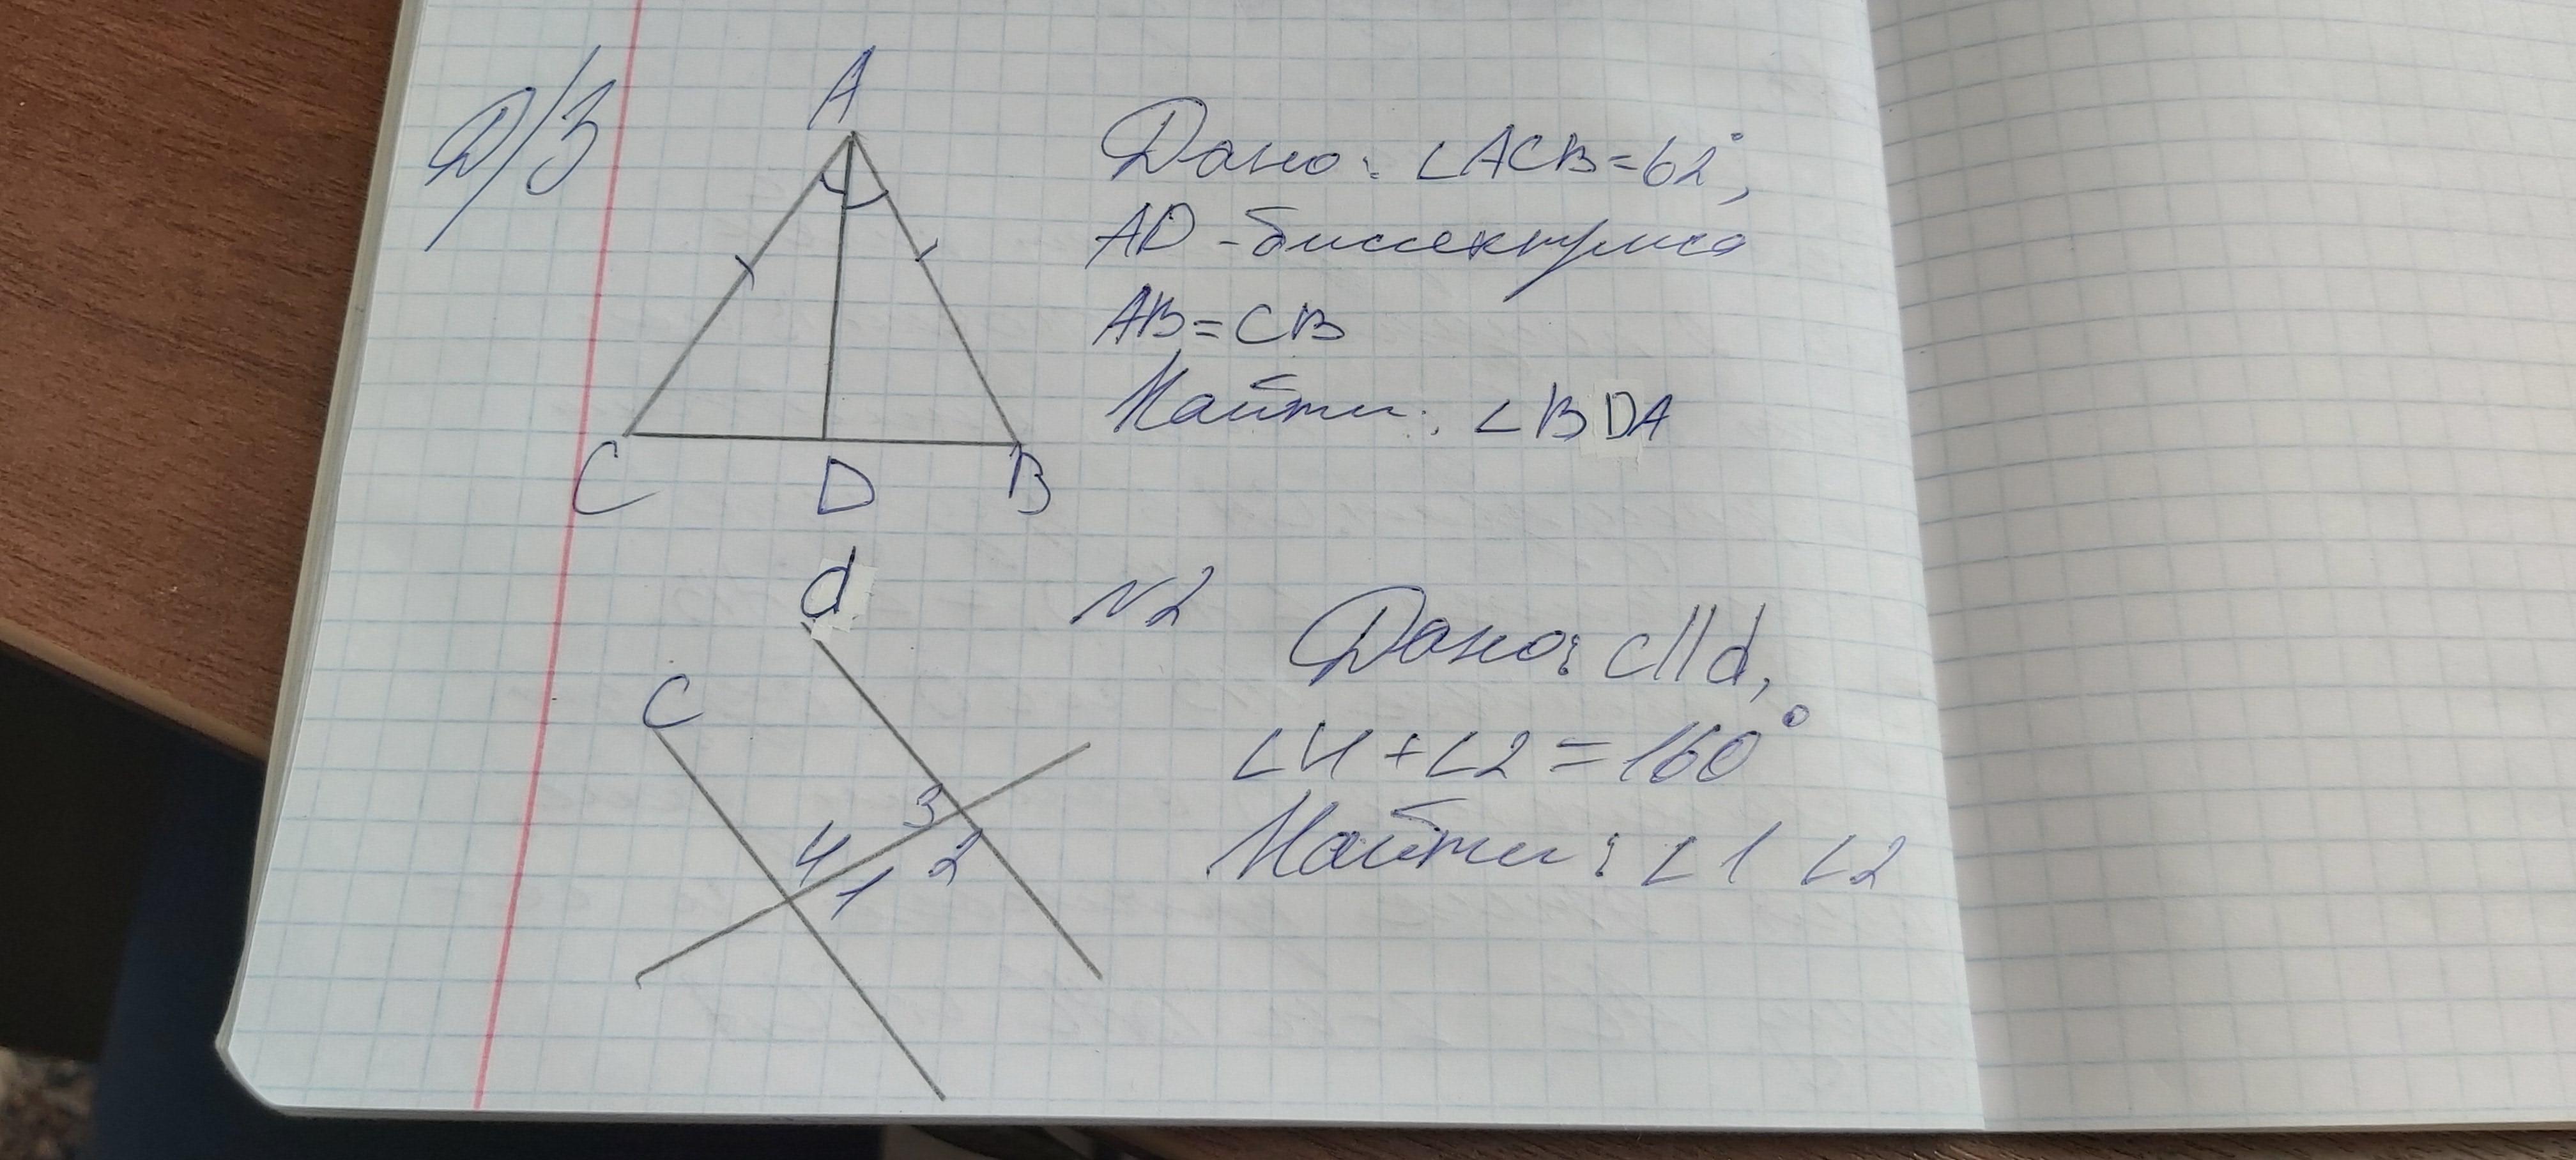 Д/З
A
C D B
Дано: ∠ACB=62°,
AD - биссектриса
AB=CB
Найти: ∠BDA
N2
d
c
3
4
2
1
Дано: c||d,
∠4+∠2=160°
Найти: ∠1 ∠2